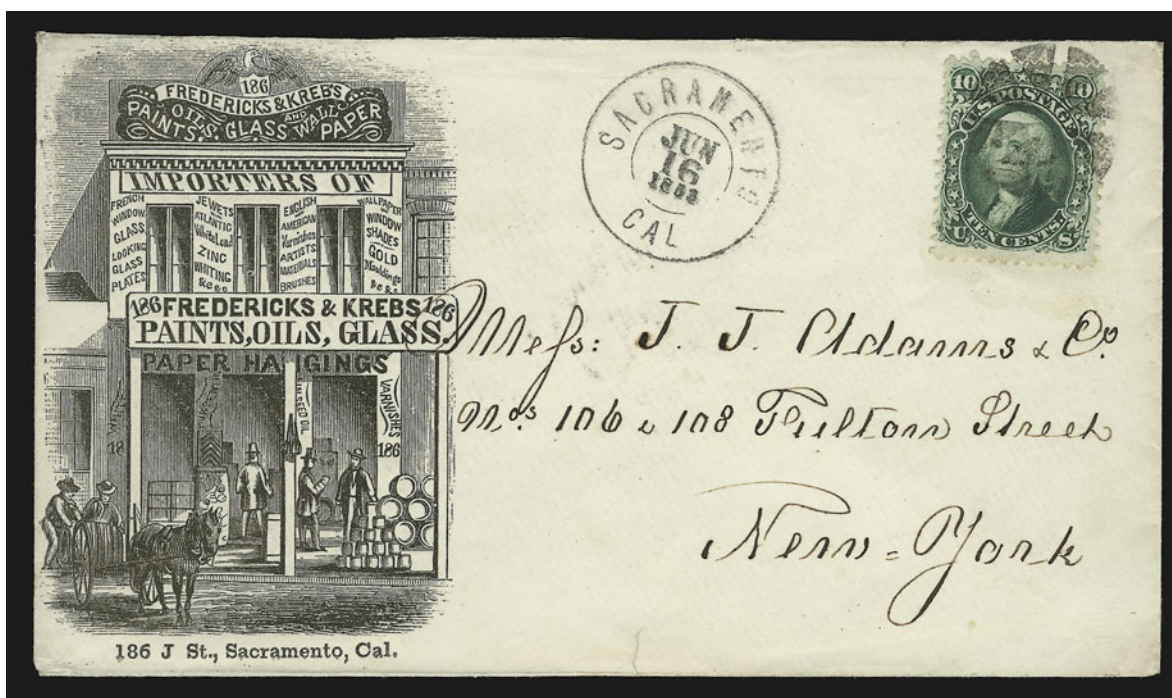 186
FREDERICKS & KREBS
PAINTS, OILS, GLASS AND WALL PAPER
IMPORTERS OF
FRENCH
WINDOW
GLASS
LOOKING
GLASS
PLATES
JEWETS
ATLANTIC
White Lead
ZINC
WHITING
&c &c
ENGLISH
AMERICAN
Varnishes
ARTISTS
MATERIALS
BRUSHES
WALLPAPER
WINDOW
SHADES
GOLD
Mouldings
&c &c
186 FREDERICKS & KREBS 186
PAINTS, OILS, GLASS.
PAPER HANGINGS
LINSEED OIL
VARNISHES
18
186
186 J St., Sacramento, Cal.
SACRAMENTO
JUN
16
CAL
10 10
U.S. POSTAGE
TEN CENTS.
U S
Mess: J. J. Adams & Co
Nos 106 & 108 Fulton Street
New=York